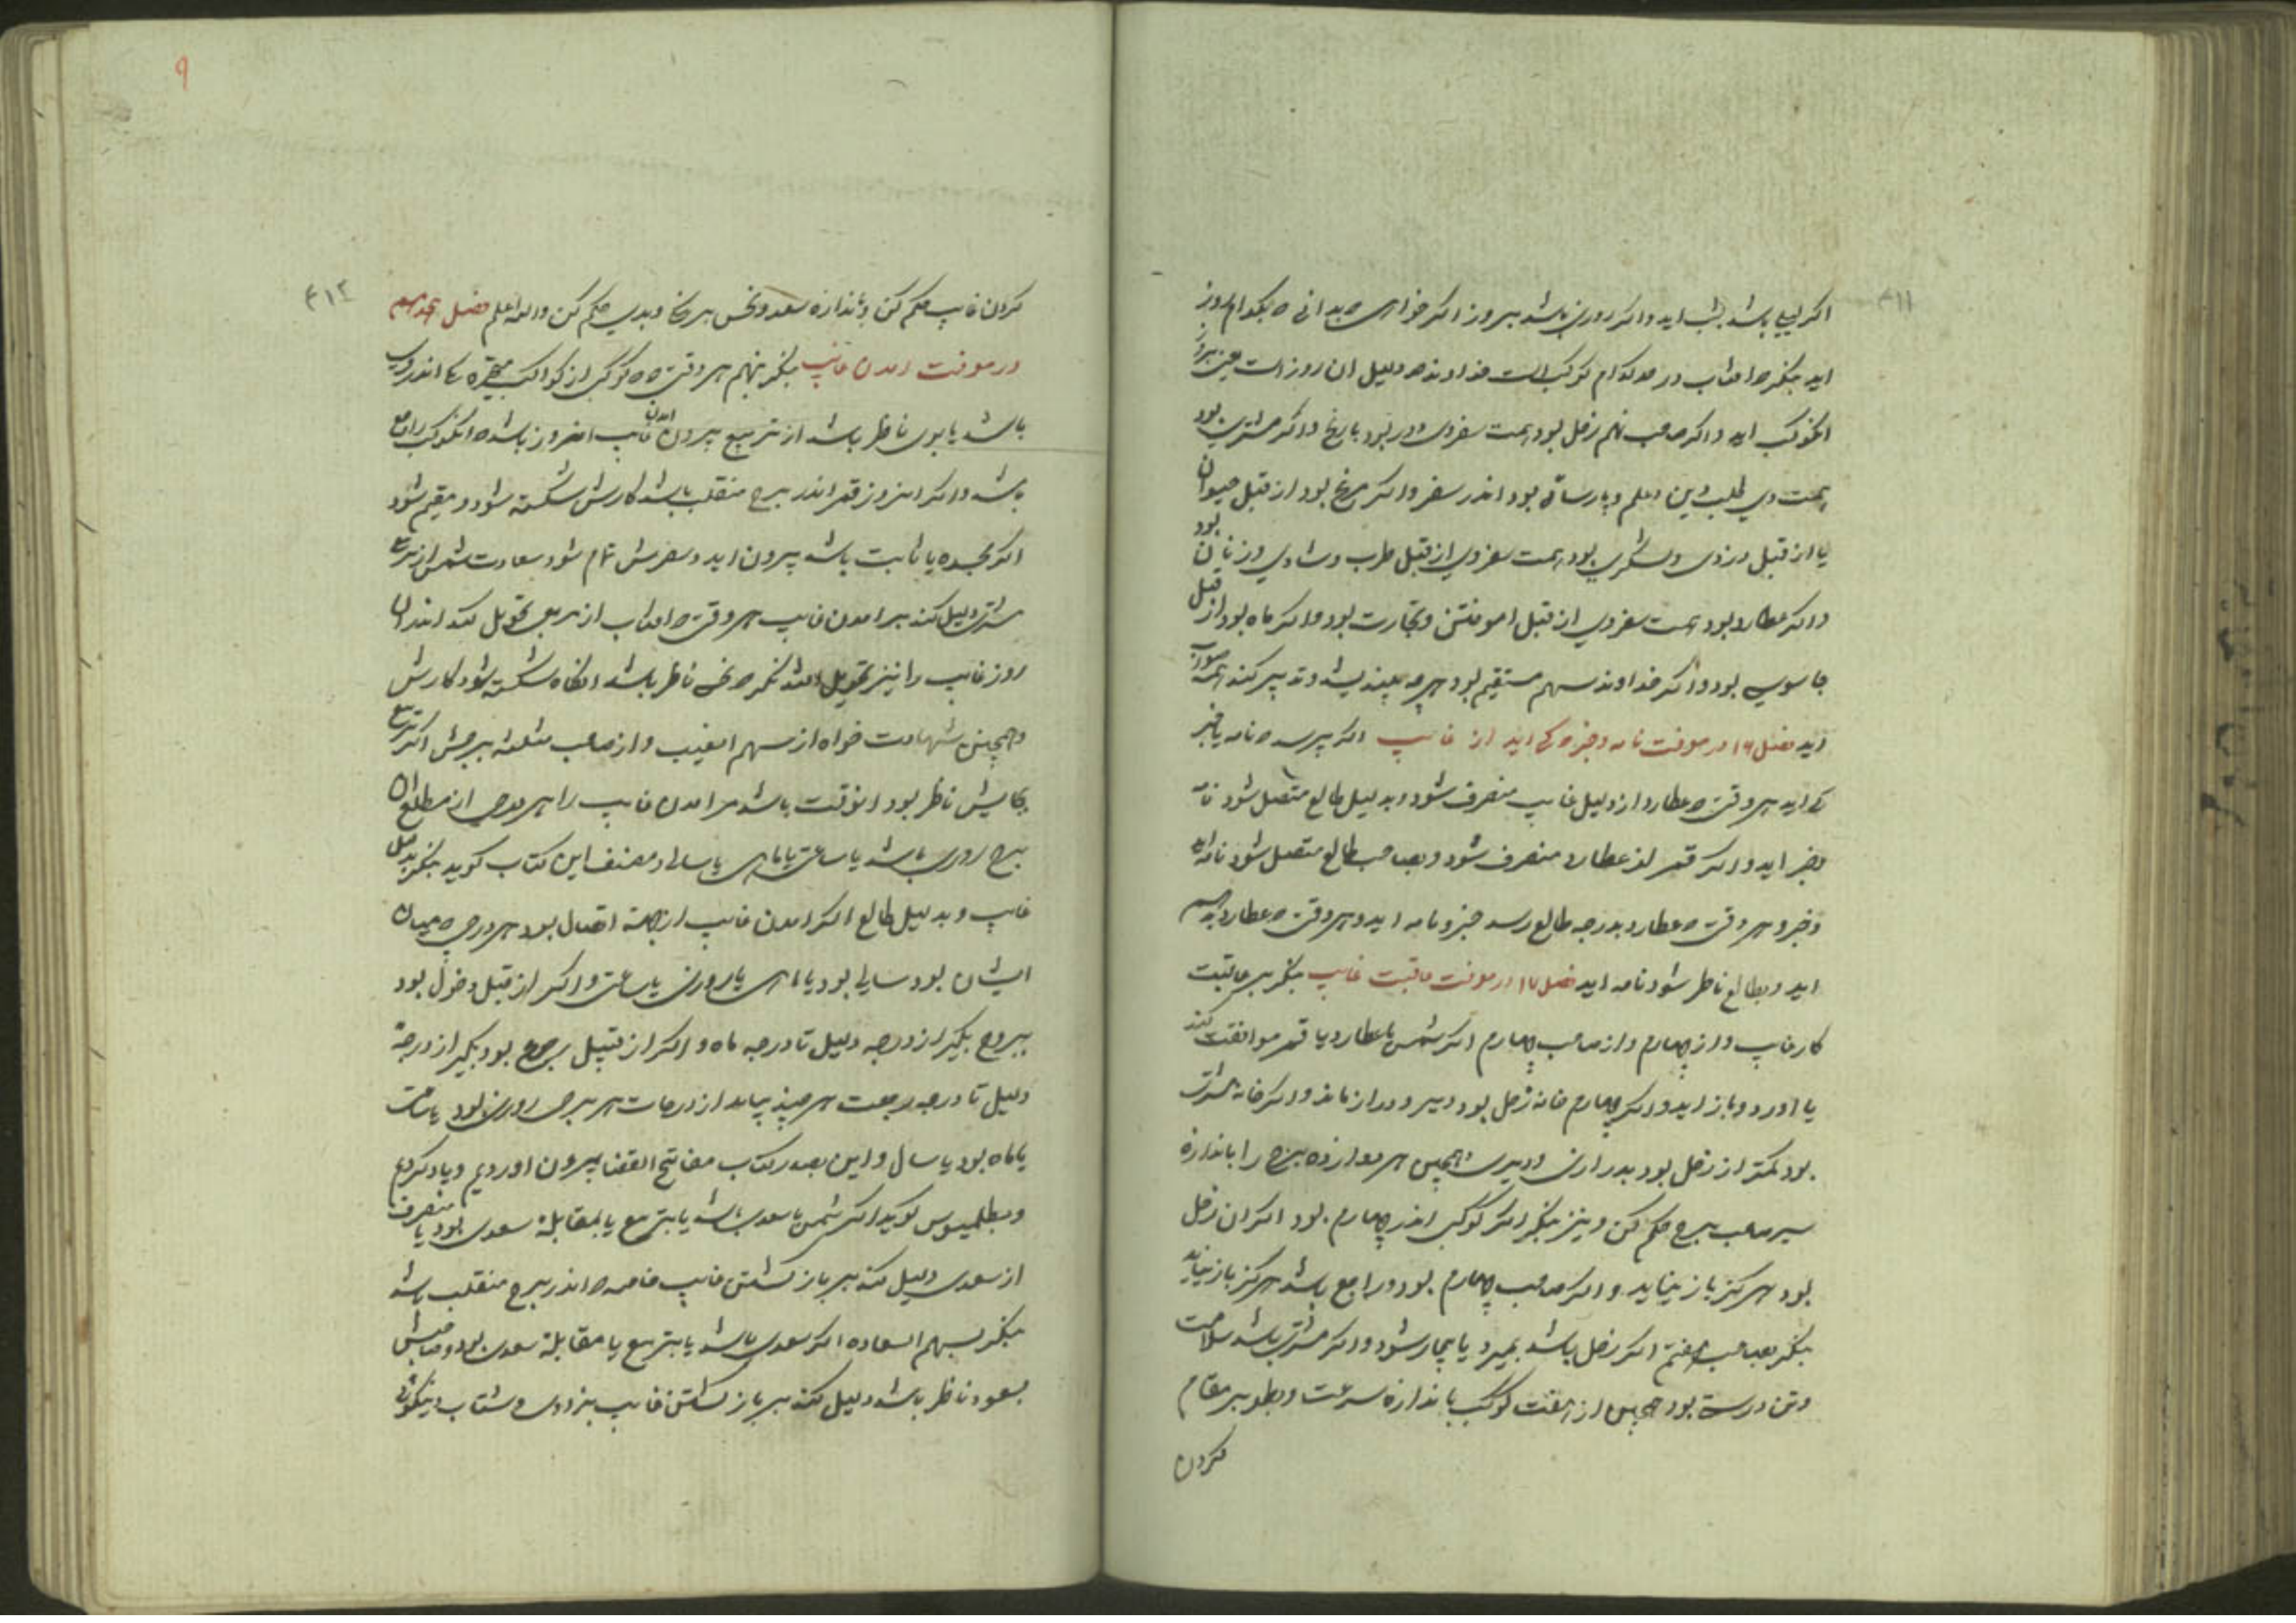 ۴۱۱
اکر لیلی باشد بشب اید و اکر روزی باشد بروز اکر خواهی که بدانی که بکدام روز
اید بنکر که افتاب در حد کدام کوکبست خداوند حد دلیل ان روز است یعنی بروز
انکوکب اید و اکر صاحب نهم زحل بود همت سفر وی دور بود با رنج و اکر مشتری بود
همت وی طلب دین و علم و پارسائی بود اندر سفر و اکر مریخ بود از قبل حیوان
یا از قبل دزدی و لشکری بود همت سفر وی از قبل طرب و شادی و زنان بود
و اکر عطارد بود همت سفر وی از قبل اموختن و تجارت بود و اکر ماه بود از قبل
جاسوسی بود و اکر خداوند سهم مستقیم بود هرچه بیندیشد و تدبیر کند همه صواب
اید فصل ۱۶ در معرفت نامه و خبر که کی اید از غایب اکر پرسد که نامه یا خبر
کی اید هر وقتی که عطارد از دلیل غایب منصرف شود و بدلیل طالع متصل شود نامه
و خبر اید و اکر قمر از عطارد منصرف شود و بصاحب طالع متصل شود نامه اید
و خبر و هر وقتی که عطارد بدرجه طالع رسد خبر و نامه اید و هر وقتی که عطارد بدهم
اید و بطالع ناظر شود نامه اید فصل ۱۷ در معرفت عاقبت غایب بنکر بر عاقبت
کار غایب و از چهارم و از صاحب چهارم اکر شمس با عطارد یا قمر موافقت کند
یا اورد و باز اید و اکر چهارم خانه زحل بود دیر و دراز ماند و اکر خانه مشتری
بود کمتر از زحل بود بدرازی و دیری و همچنین هر دوازده برج را باندازه
سیر صاحب برج حکم کن و نیز بنکر اکر کوکبی اندر چهارم بود اکر ان زحل
بود هرکز باز نیاید و اکر صاحب چهارم بود و راجع باشد هرکز باز نیاید
بنکر بصاحب هفتم اکر زحل باشد بمیرد یا بیمار شود و اکر مشتری باشد سلامت
و تن درست بود همچنین از هفت کوکب باندازه سرعت و بطو بر مقام
کردن
۹
۴۱۲
کردن غایب حکم کن و باندازه سعد و نحس بر نیکی و بدی حکم کن و الله اعلم فصل هجدهم
در معرفت امدن غایب بنکر بنهم هر وقتی که کوکبی از کواکب متحیره اندر وی
باشد یا بوی ناظر باشد از تربیع بیرون امدن غایب انروز باشد که انکوکب راجع
باشد و اکر انروز قمر اندر برج منقلب باشد کارش شکسته شود و مقیم شود
اکر بجسده یا ثابت باشد بیرون اید و سفرش تمام شود سعادت شمس از تربیع
مشتری دلیل کند بر امدن غایب هر وقتی که افتاب از برجی تحویل کند اندران
روز غایب را نیز تحویل افتد مکر که نحسی ناظر باشد انکاه شکسته شود کارش
و همچنین شهادت خواه از سهم الغیب و از صاحب مثلثه برجش اکر تربیع
بجایش ناظر بود انوقت باشد مر امدن غایب را هر درجی از مطلع ان
برج روزی باشد یا ساعتی یا ماهی یا سالی و مصنف این کتاب کوید بنکر بدلیل
غایب و بدلیل طالع اکر امدن غایب از جهت اتصال بود هر درجی که میان
ایشان بود سالی بود یا ماهی یا روزی یا ساعتی و اکر از قبل دخول بود
ببروج بکیر از درجه دلیل تا درجه ماه و اکر از قبیل رجوع بود بکیر از درجه
دلیل تا درجه رجعت هر چند بیاید از درجات هر برجی روزی بود یا ساعت
یا ماه بود یا سال و این بصدر کتاب مفاتیح القضا بیرون اوردیم و یاد کردیم
و بطلمیوس کوید اکر شمس با سعدی باشد یا بتربیع یا بمقابله سعدی بود یا منصرف
از سعدی دلیل کند بر باز کشتن غایب خاصه که اندر برج منقلب باشد
بنکر بسهم السعاده اکر سعدی باشد یا بتربیع یا مقابله سعدی بود و صاحبش
بسعود ناظر باشد دلیل کند بر باز کشتن غایب بزودی و شتاب و نیکوئی